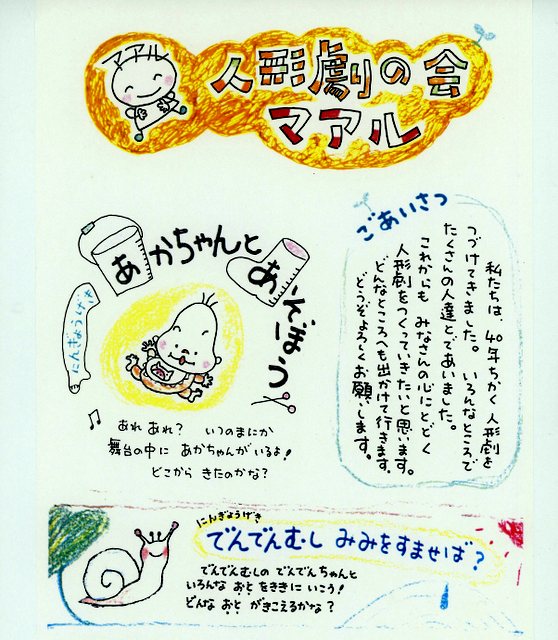 マアル
人形劇の会
マアル
ごあいさつ
私たちは、40年ちかく人形劇を
つづけてきました。いろんなところで
たくさんの人達とであいました。
これからも みなさんの心にとどく
人形劇をつくっていきたいと思います。
どんなところへも出かけて行きます。
どうぞよろしくお願いします。
あかちゃんと
あそぼう
にんぎょうげき
あれ あれ? いつのまにか
舞台の中に あかちゃんがいるよ!
どこから きたのかな?
にんぎょうげき
でんでんむし みみをすませば?
でんでんむしの でんでんちゃんと
いろんな おと をききに いこう!
どんな おと がきこえるかな?